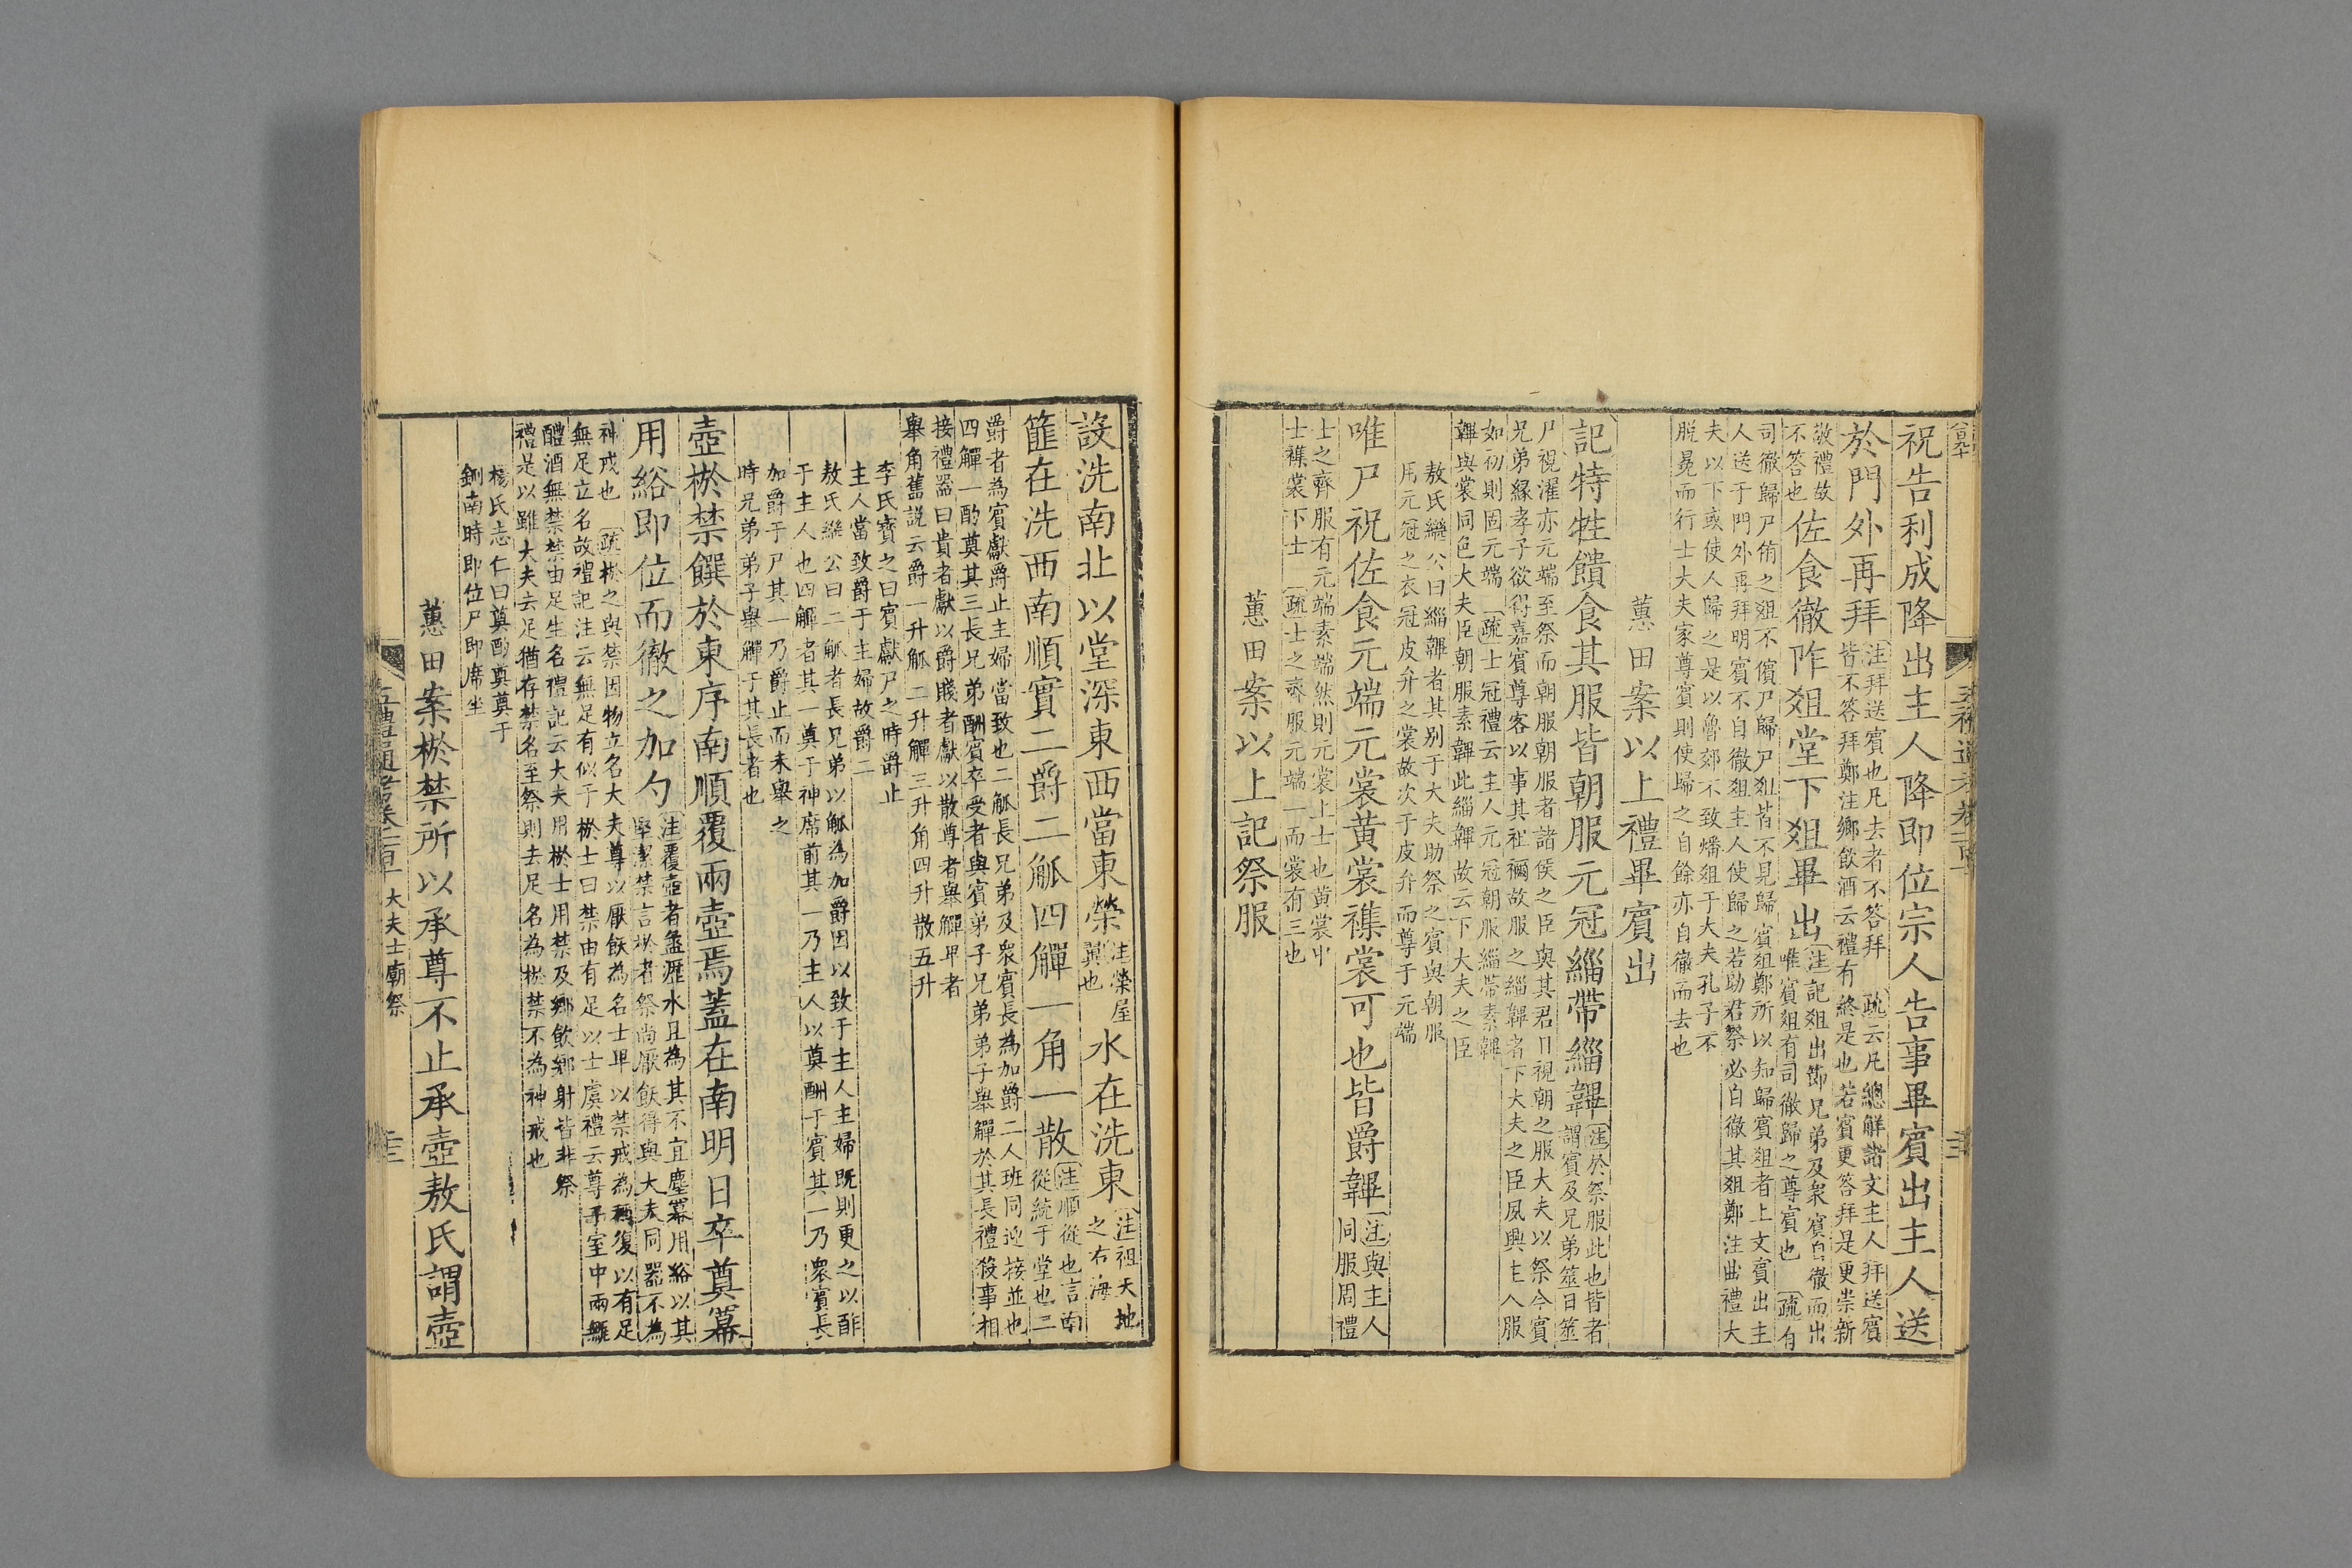 祝告利成降出主人降即位宗人告事畢賓出主人送
於門外再拜
注拜送賓也凡去者不答拜
皆不答拜鄭注鄉飲酒云禮有終是也若賓更答拜是更崇新
疏云凡總解諸文主人拜送賓
敬禮故
不答也
佐食徹阼俎堂下俎畢出
注記俎出節兄弟及衆賓自徹而出
唯賓俎有司徹歸之尊賓也
疏有
司徹歸尸侑之俎不儐尸歸尸俎皆不見歸賓俎鄭所以知歸賓俎者上文賓出主
人送于門外再拜明賓不自徹俎主人使歸之若助君祭必自徹其俎鄭注曲禮大
夫以下或使人歸之是以魯郊不致燔俎于大夫孔子不
脫冕而行士大夫家尊賓則使歸之自餘亦自徹而去也
蕙田案以上禮畢賓出
記特牲饋食其服皆朝服元冠緇帶緇韠
注於祭服此也皆者
謂賓及兄弟筮日筮
尸視濯亦元端至祭而朝服朝服者諸侯之臣與其君日視朝之服大夫以祭今賓
兄弟緣孝子欲得嘉賓尊客以事其祖禰故服之緇韠者下大夫之臣夙興主人服
如初則固元端
疏士冠禮云主人元冠朝服緇帶素韠
韠與裳同色大夫臣朝服素韠此緇韠故云下大夫之臣
敖氏繼公曰緇韠者其別于大夫助祭之賓與朝服
用元冠之衣冠皮弁之裳故次于皮弁而尊于元端
唯尸祝佐食元端元裳黃裳襍裳可也皆爵韠
注與主人
同服周禮
士之齊服有元端素端然則元裳上士也黃裳中
士襍裳下士
疏士之齋服元端一而裳有三也
蕙田案以上記祭服
設洗南北以堂深東西當東榮
注榮屋
翼也
水在洗東
注祖天地
之右海
篚在洗西南順實二爵二觚四觶一角一散
注順從也言南
從統于堂也二
爵者為賓獻爵止主婦當致也二觚長兄弟及衆賓長為加爵二人班同迎接並也
四觶一酌奠其三長兄弟酬賓卒受者與賓弟子兄弟弟子舉觶於其長禮殺事相
接禮器曰貴者獻以爵賤者獻以散尊者舉觶卑者
舉角舊説云爵一升觚二升觶三升角四升散五升
李氏寶之曰賓獻尸之時爵止
主人當致爵于主婦故爵二
敖氏繼公曰二觚者長兄弟以觚為加爵因以致于主人主婦既則更之以酢
于主人也四觶者其一奠于神席前其一乃主人以奠酬于賓其一乃衆賓長
加爵于尸其一乃爵止而未舉之
時兄弟弟子舉觶于其長者也
壺棜禁饌於東序南順覆兩壺焉蓋在南明日卒奠冪
用綌即位而徹之加勺
注覆壺者盝瀝水且為其不宜塵冪用綌以其
堅潔禁言棜者祭尚厭飫得與大夫同器不為
神戒也
疏棜之與禁因物立名大夫尊以厭飫為名士卑以禁戒為稱復以有足
無足立名故禮記注云無足有似于棜士曰禁由有足以士虞禮云尊于室中兩甒
醴酒無禁禁由足生名禮記云大夫用棜士用禁及鄉飲鄉射皆非祭
禮是以雖大夫去足猶存禁名至祭則去足名為棜禁不為神戒也
楊氏志仁曰奠酌奠奠于
鉶南時即位尸即席坐
蕙田案棜禁所以承尊不止承壺敖氏謂壺
大夫士廟祭